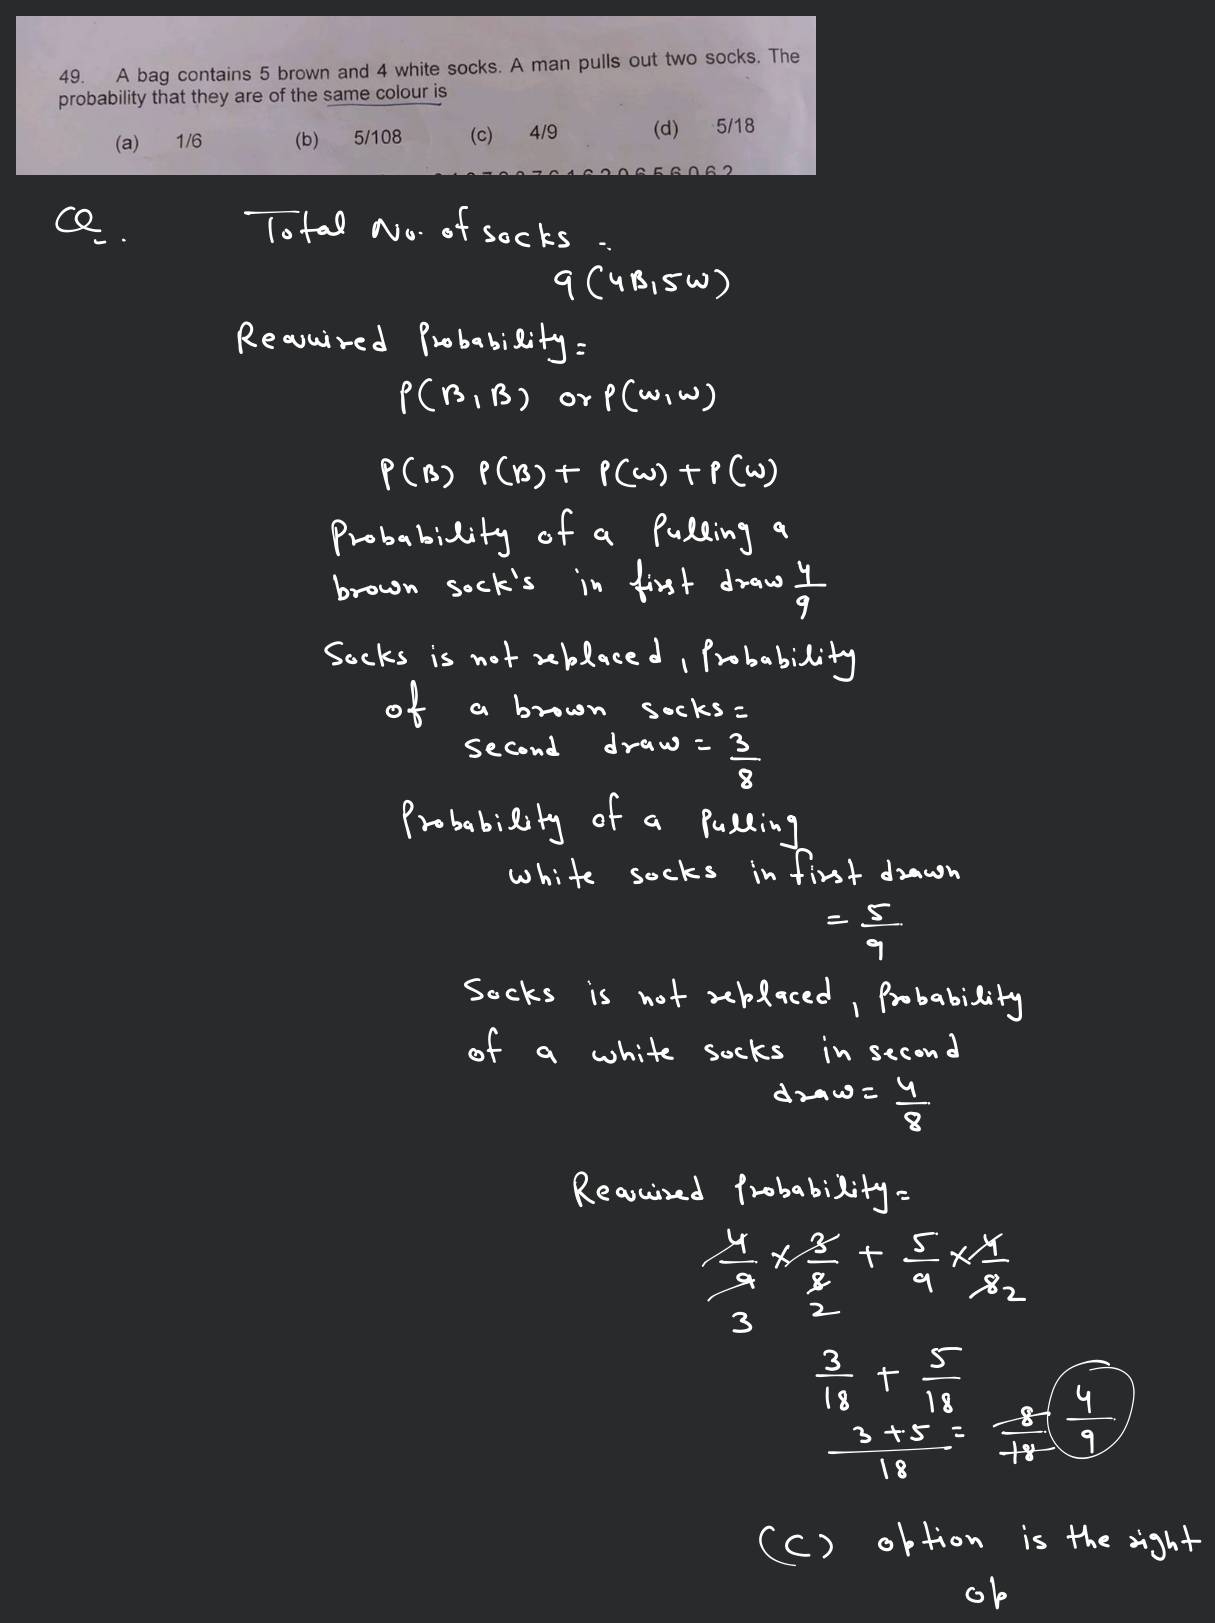 49. A bag contains 5 brown and 4 white socks. A man pulls out two socks. The
probability that they are of the same colour is
(a) 1/6 (b) 5/108 (c) 4/9 (d) 5/18
Q.
Total No. of socks :
9 (4B, 5W)
Required Probability =
P(B, B) or P(W, W)
P(B) P(B) + P(W) + P(W)
Probability of a Pulling a
brown sock's in first draw 4/9
Socks is not replaced, Probability
of a brown socks =
second draw = 3/8
Probability of a Pulling
white socks in first drawn
= 5/9
Socks is not replaced, Probability
of a white socks in second
draw = 4/8
Required Probability =
4/9 × 3/8 + 5/9 × 4/8
3 2 2
3/18 + 5/18
3+5/18 = 8/18 4/9
(C) option is the right
op